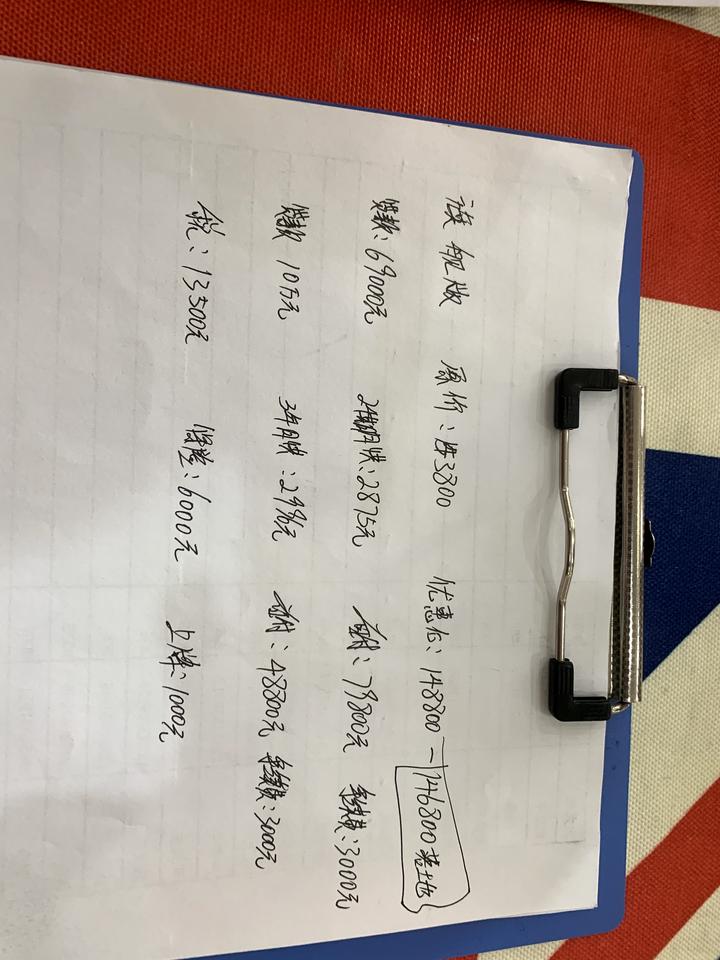 旗舰版 原价:153800 优惠价:148800 — 146800落地
贷款:69000元 24期月供:2875元 首付:79800元 手续费:3000元
贷款 10万元 3年月供:2996元 首付:48800元 手续费:3000元
税:13500元 保险:6000元 上牌:1000元